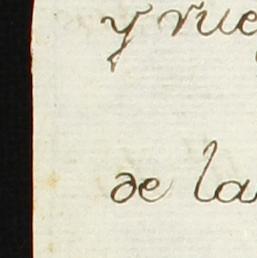 y rue
de la